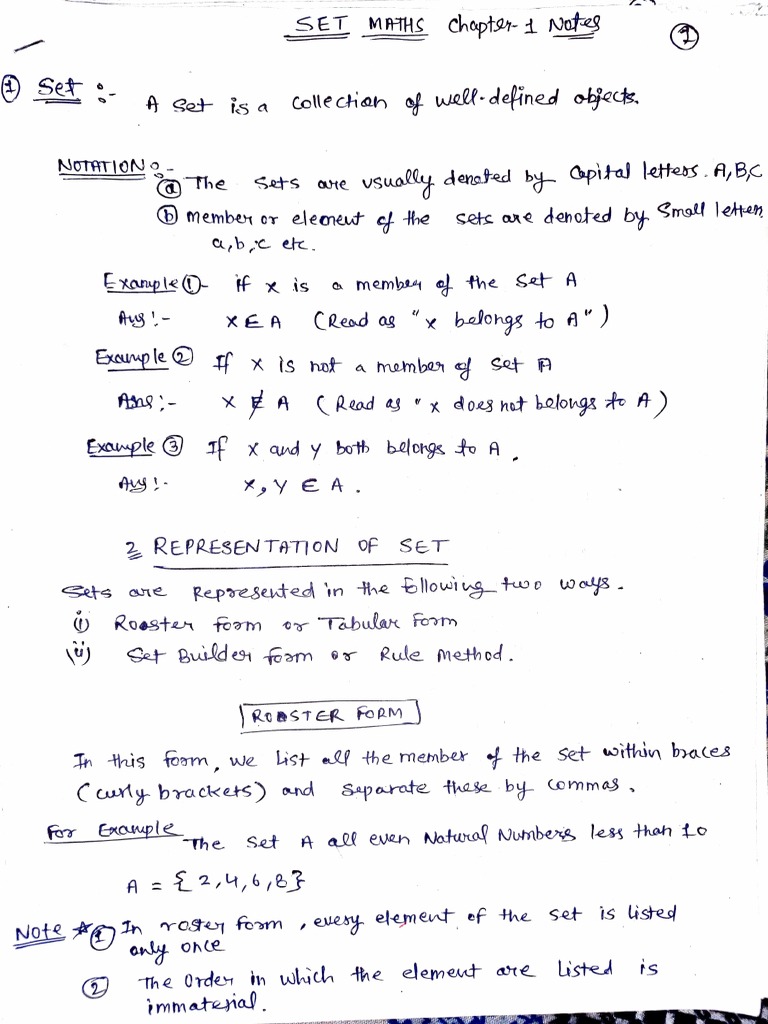 SET MATHS Chapter-1 Notes
1
① Set :-
A Set is a collection of well-defined objects.
NOTATION :-
ⓐ The sets are usually denoted by Capital letters. A,B,C
ⓑ member or element of the sets are denoted by Small letters
a,b,c etc.
Example ①- if x is a member of the Set A
Ans :- x ∈ A (Read as "x belongs to A")
Example ② If x is not a member of set A
Ans :- x ∉ A (Read as "x does not belongs to A)
Example ③ If x and y both belongs to A.
Ans :- x, y ∈ A.
2 REPRESENTATION OF SET
Sets are Represented in the following two ways.
(i) Rooster form or Tabular form
(ii) Set Builder form or Rule Method.
ROOSTER FORM
In this form, we list all the member of the set within braces
(curly brackets) and separate these by commas.
For Example The set A all even Natural Numbers less than 10
A = {2,4,6,8}
Note * ① In roster form, every element of the set is listed
only once
② The Order in which the element are listed is
immaterial.